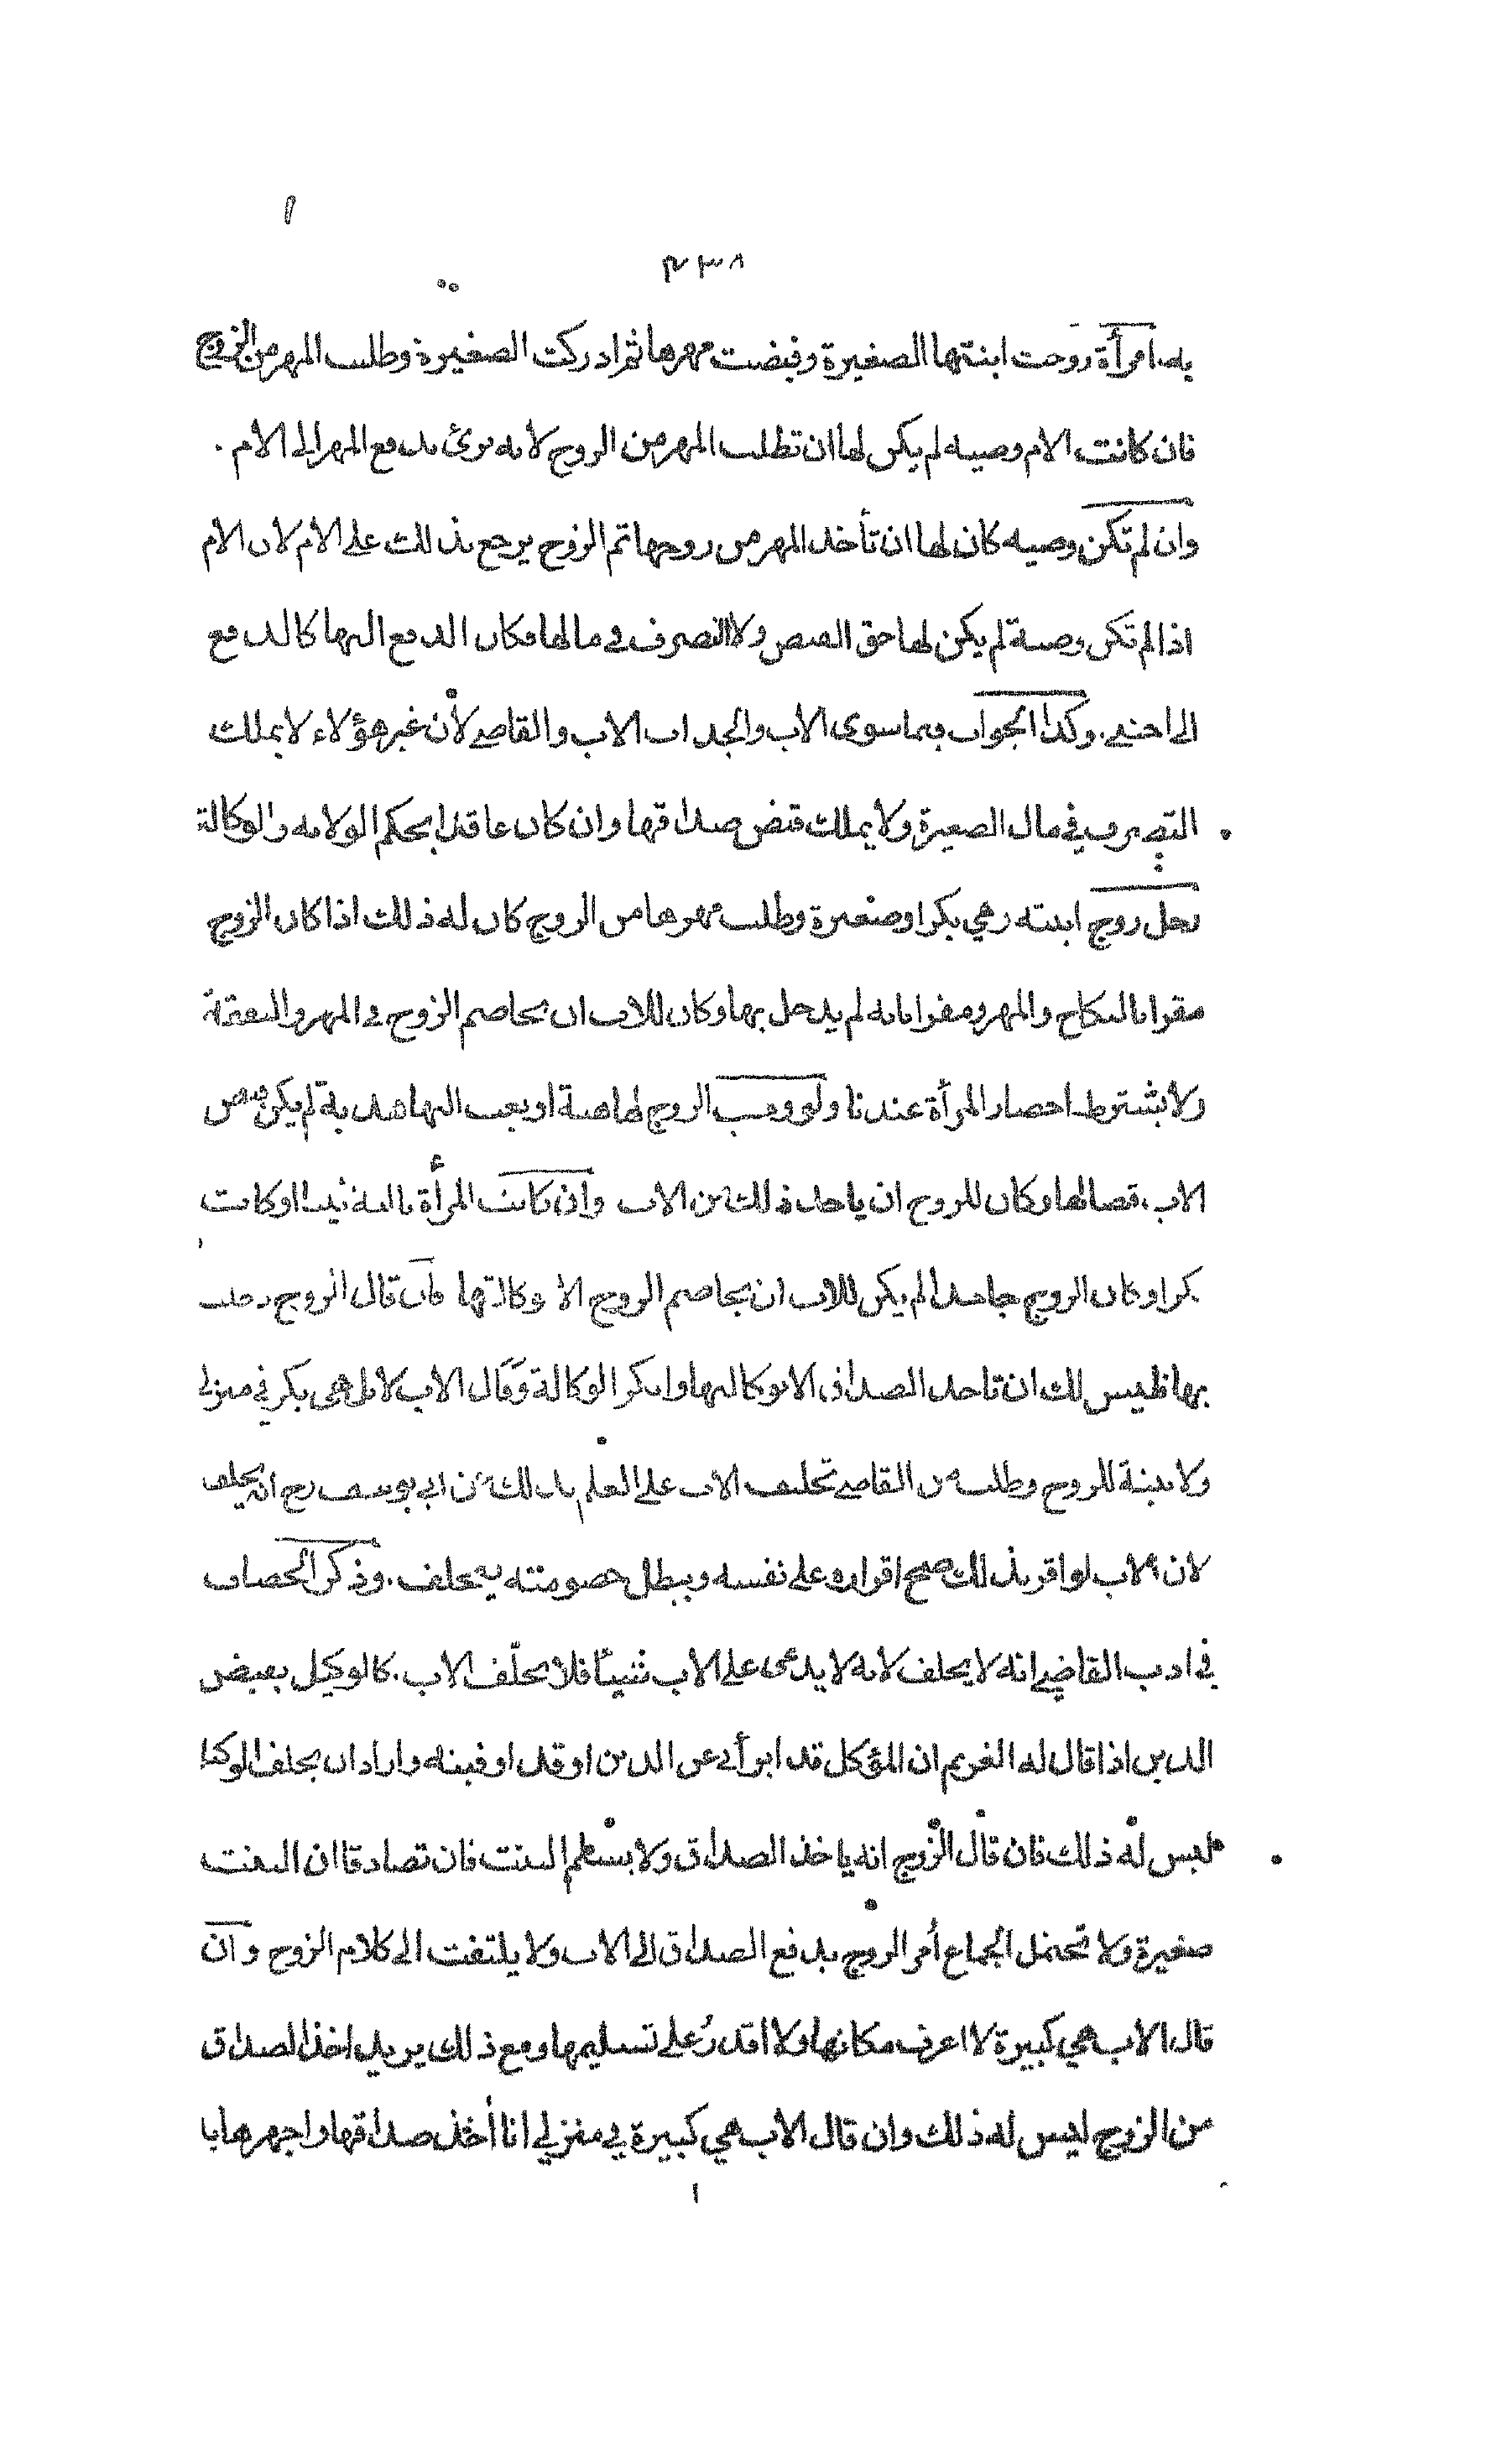 ٤٣٨
به. امرأة زوجت ابنتها الصغيرة وقبضت مهرها ثم ادركت الصغيرة وطلبت المهر من الزوج
فان كانت الام وصيه لم يكن لها ان تطلب المهر من الزوج لانه برئ بدفع المهر الى الام .
وان لم تكن وصيه كان لها ان تأخذ المهر من زوجها ثم الزوج يرجع بذلك على الام لان الام
اذا لم تكن وصية لم يكن لها حق القبض ولا التصرف في مالها فكان الدفع اليها كالدفع
الى اجنبي. وكذا الجواب فيما سوى الاب والجد اب الاب والقاضي لأن غير هؤلاء لا يملك
التصرف في مال الصغيرة ولا يملك قبض صداقها وان كان عاقدا بحكم الولايه والوكالة
رجل زوج ابنته وهي بكر او صغيرة وطلب مهرها من الزوج كان له ذلك اذا كان الزوج
مقرا بالنكاح والمهر ومقرا بانه لم يدخل بها وكان للاب ان يخاصم الزوج في المهر والنفقة
ولا يشترط احضار المرأة عندنا ولو وهب الزوج لها هبة او بعث اليها هدية لم يكن قبض
الاب قبضا لها وكان للزوج ان ياخذ ذلك من الاب وان كانت المرأة بالغة ثيبا او كانت
بكرا وكان الزوج جاحدا لم يكن للاب ان يخاصم الزوج الا بوكالتها فان قال الزوج دخلت
بها فليس لك ان تاخذ الصداق الا بوكالتها وانكر الوكالة وقال الاب لا بل هي بكر في منزلي
ولا بينة للزوج وطلب من القاضي تحليف الاب على العلم بذلك عن ابي يوسف رح انه يحلف
لان الاب لو اقر بذلك صح اقراره على نفسه ويبطل خصومته فيحلف. وذكر الخصاف
في ادب القاضي انه لا يحلف لانه لا يدعى على الاب شيئا فلا يحلّف الاب. كالوكيل بقبض
الدين اذا قال له الغريم ان المؤكل قد ابرأني عن الدين او قد اوفيته واراد ان يحلف الوكيل
ليس له ذلك فان قال الزوج انه ياخذ الصداق ولا يسلم البنت فان تصادقا ان البنت
صغيرة ولا تحتمل الجماع أمر الزوج بدفع الصداق الى الاب ولا يلتفت الى كلام الزوج وان
قال الاب هي كبيرة لا اعرف مكانها ولا اقدرُ على تسليمها ومع ذلك يريد اخذ الصداق
من الزوج ليس له ذلك وان قال الاب هي كبيرة في منزلي انا أخذ صداقها واجهرها با